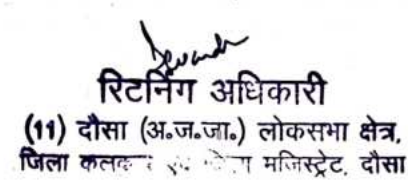 रिटर्निंग अधिकारी
(11) दौसा (अ.ज.जा.) लोकसभा क्षेत्र,
जिला मजिस्ट्रेट, दौसा